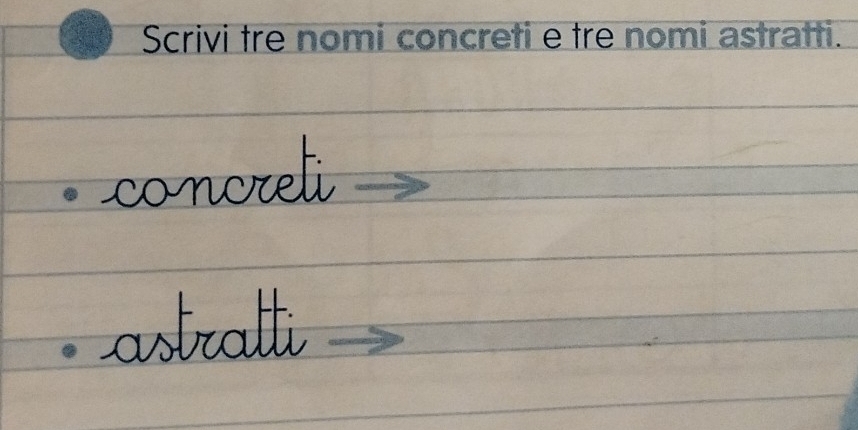 Scrivi tre nomi concreti e tre nomi astratti.
• concreti →
• astratti →